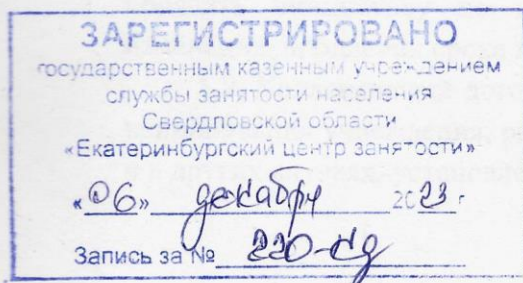 ЗАРЕГИСТРИРОВАНО
государственным казенным учреждением
службы занятости населения
Свердловской области
«Екатеринбургский центр занятости»
«06» декабря 2023 г
Запись за № 220-кд